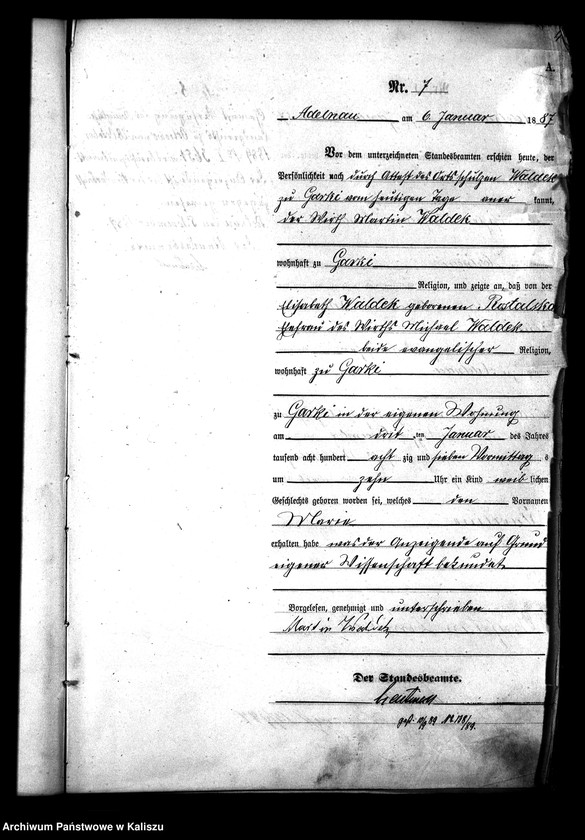 A.
Nr. 7
Adelnau am 6. Januar 1887
Vor dem unterzeichneten Standesbeamten erschien heute, der
Persönlichkeit nach durch Attest des Ortsschulzen Waldek
zu Garki vom heutigen Tage aner kannt,
der Wirth Martin Waldek
wohnhaft zu Garki
Religion, und zeigte an, daß von der
Elisabeth Waldek geborenen Rostalska
Ehefrau des Wirths Michael Waldek
beide evangelischer Religion,
wohnhaft zu Garki
zu Garki in der eigenen Wohnung
am drit ten Januar des Jahres
tausend acht hundert acht zig und sieben Vormittag s
um zehn Uhr ein Kind weib lichen
Geschlechts geboren worden sei, welches den Vornamen
Marie
erhalten habe was der Anzeigende auf Grund
eigener Wissenschaft bekundet
Vorgelesen, genehmigt und unterschrieben
Martin
Der Standesbeamte.
Archiwum Państwowe w Kaliszu